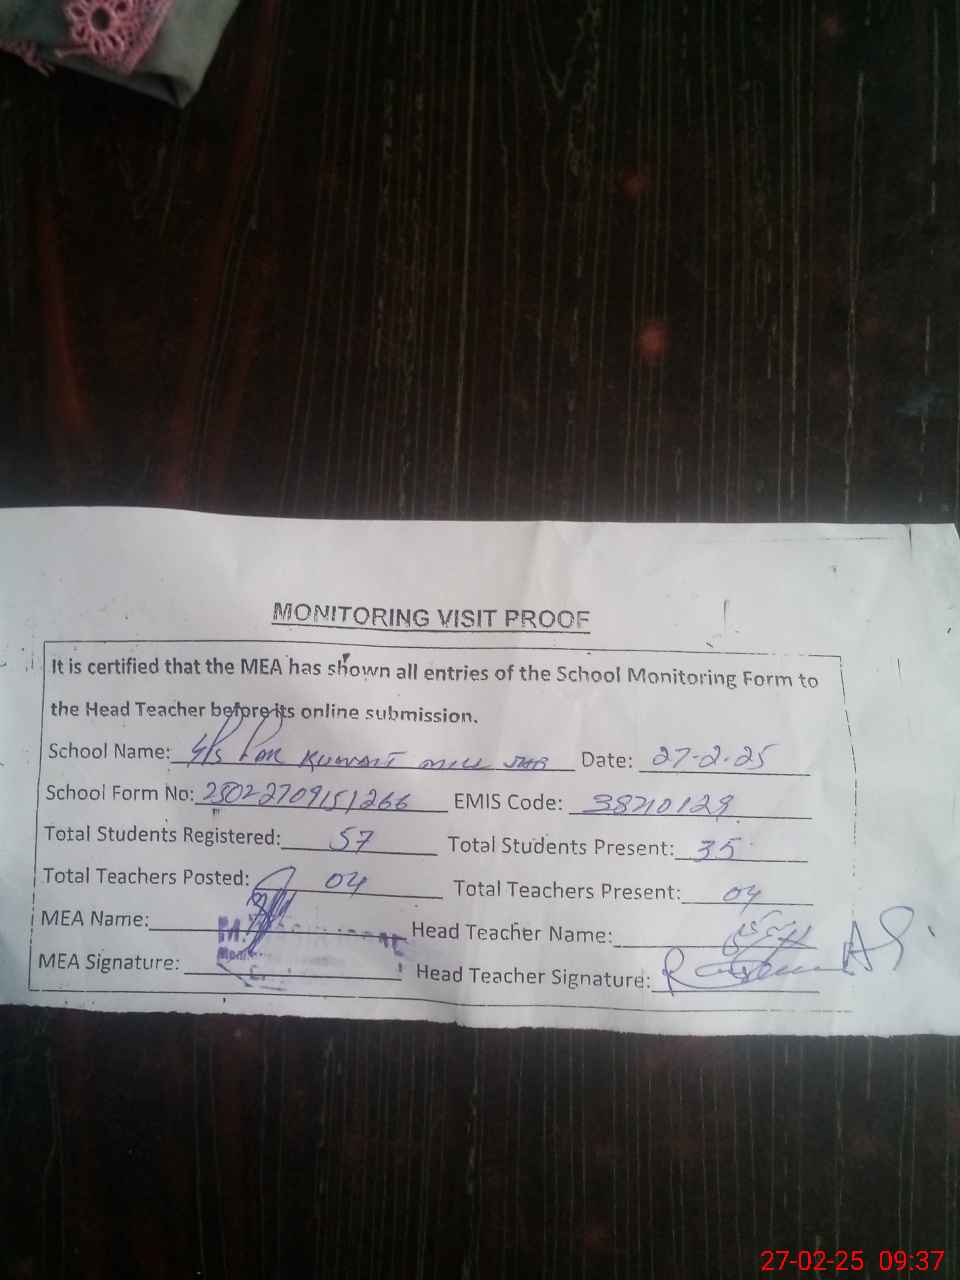 MONITORING VISIT PROOF
It is certified that the MEA has shown all entries of the School Monitoring Form to
the Head Teacher before its online submission.
School Name: Kuwait Mill Date: 27-2-25
School Form No: 25022709151266 EMIS Code: 38210129
Total Students Registered: 57 Total Students Present: 35
Total Teachers Posted: 04 Total Teachers Present: 04
MEA Name: Head Teacher Name:
MEA Signature: Head Teacher Signature:
27-02-25 09:37